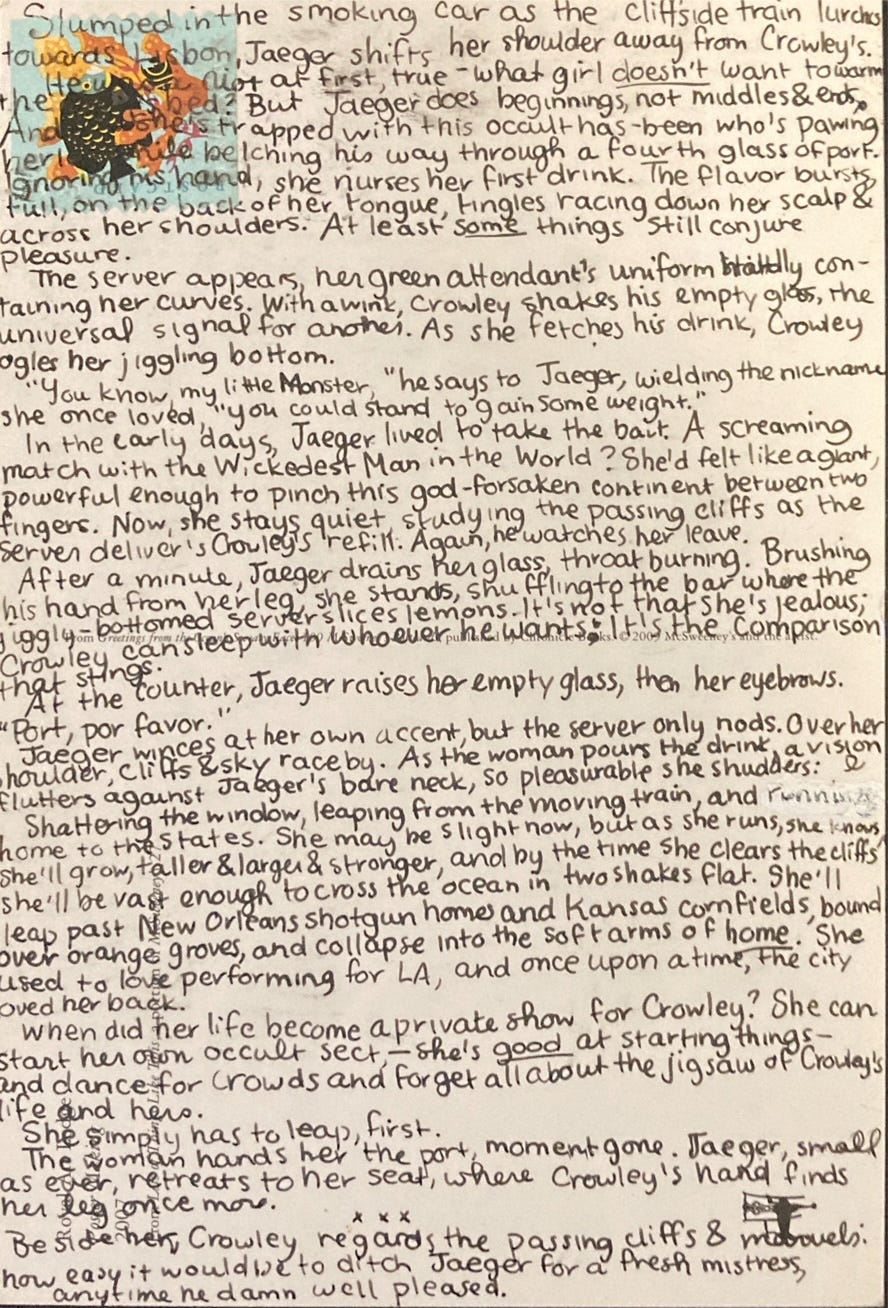 Slumped in the smoking car as the cliffside train lurches
towards Lisbon, Jaeger shifts her shoulder away from Crowley's.
He was a riot at first, true - what girl doesn't want to warm
the bed? But Jaeger does beginnings, not middles & ends.
And she's trapped with this occult has-been who's pawing
her while belching his way through a fourth glass of port.
Ignoring his hand, she nurses her first drink. The flavor bursts,
full, on the back of her tongue, tingles racing down her scalp &
across her shoulders. At least some things still conjure
pleasure.
The server appears, her green attendant's uniform con-
taining her curves. With a wink, Crowley shakes his empty glass, the
universal signal for another. As she fetches his drink, Crowley
ogles her jiggling bottom.
"You know, my little Monster," he says to Jaeger, wielding the nickname
she once loved, "you could stand to gain some weight."
In the early days, Jaeger lived to take the bait. A screaming
match with the Wickedest Man in the World? She'd felt like a giant,
powerful enough to pinch this god-forsaken continent between two
fingers. Now, she stays quiet, studying the passing cliffs as the
server deliver's Crowley's refill. Again, he watches her leave.
After a minute, Jaeger drains her glass, throat burning. Brushing
his hand from her leg, she stands, shuffling to the bar where the
jiggly-bottomed server slices lemons. It's not that she's jealous;
Crowley can sleep with whoever he wants. It's the comparison
that stings.
At the counter, Jaeger raises her empty glass, then her eyebrows.
"Port, por favor."
Jaeger winces at her own accent, but the server only nods. Over her
shoulder, cliffs & sky race by. As the woman pours the drink, a vision
flutters against Jaeger's bare neck, so pleasurable she shudders:
Shattering the window, leaping from the moving train, and running
home to the States. She may be slight now, but as she runs, she knows
she'll grow, taller & larger & stronger, and by the time she clears the cliffs
she'll be vast enough to cross the ocean in two shakes flat. She'll
leap past New Orleans shotgun homes and Kansas cornfields, bound
over orange groves, and collapse into the soft arms of home. She
used to love performing for LA, and once upon a time, the city
loved her back.
When did her life become a private show for Crowley? She can
start her own occult sect, - she's good at starting things -
and dance for crowds and forget all about the jigsaw of Crowley's
life and hers.
She simply has to leap, first.
The woman hands her the port, moment gone. Jaeger, small
as ever, retreats to her seat, where Crowley's hand finds
her leg once more.
x x x
Beside her, Crowley regards the passing cliffs & marvels:
how easy it would be to ditch Jaeger for a fresh mistress,
anytime he damn well pleased.